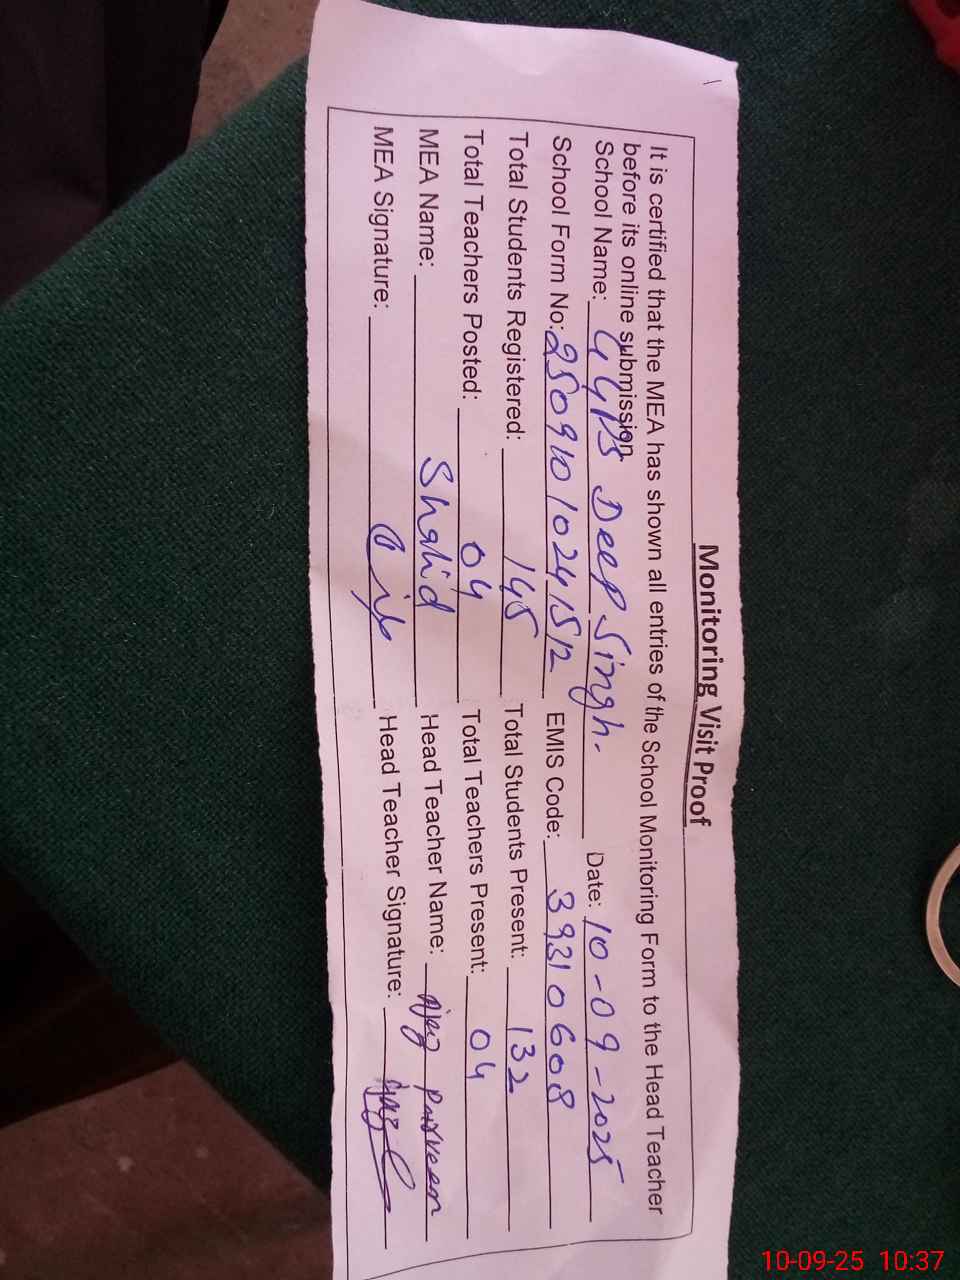 Monitoring Visit Proof
It is certified that the MEA has shown all entries of the School Monitoring Form to the Head Teacher
before its online submission
School Name: GGPS Deep Singh. Date: 10-09-2025
School Form No: 25091010241512 EMIS Code: 39310608
Total Students Registered: 145 Total Students Present: 132
Total Teachers Posted: 04 Total Teachers Present: 04
MEA Name: Shahid Head Teacher Name: Parveen
MEA Signature: Head Teacher Signature:
10-09-25 10:37